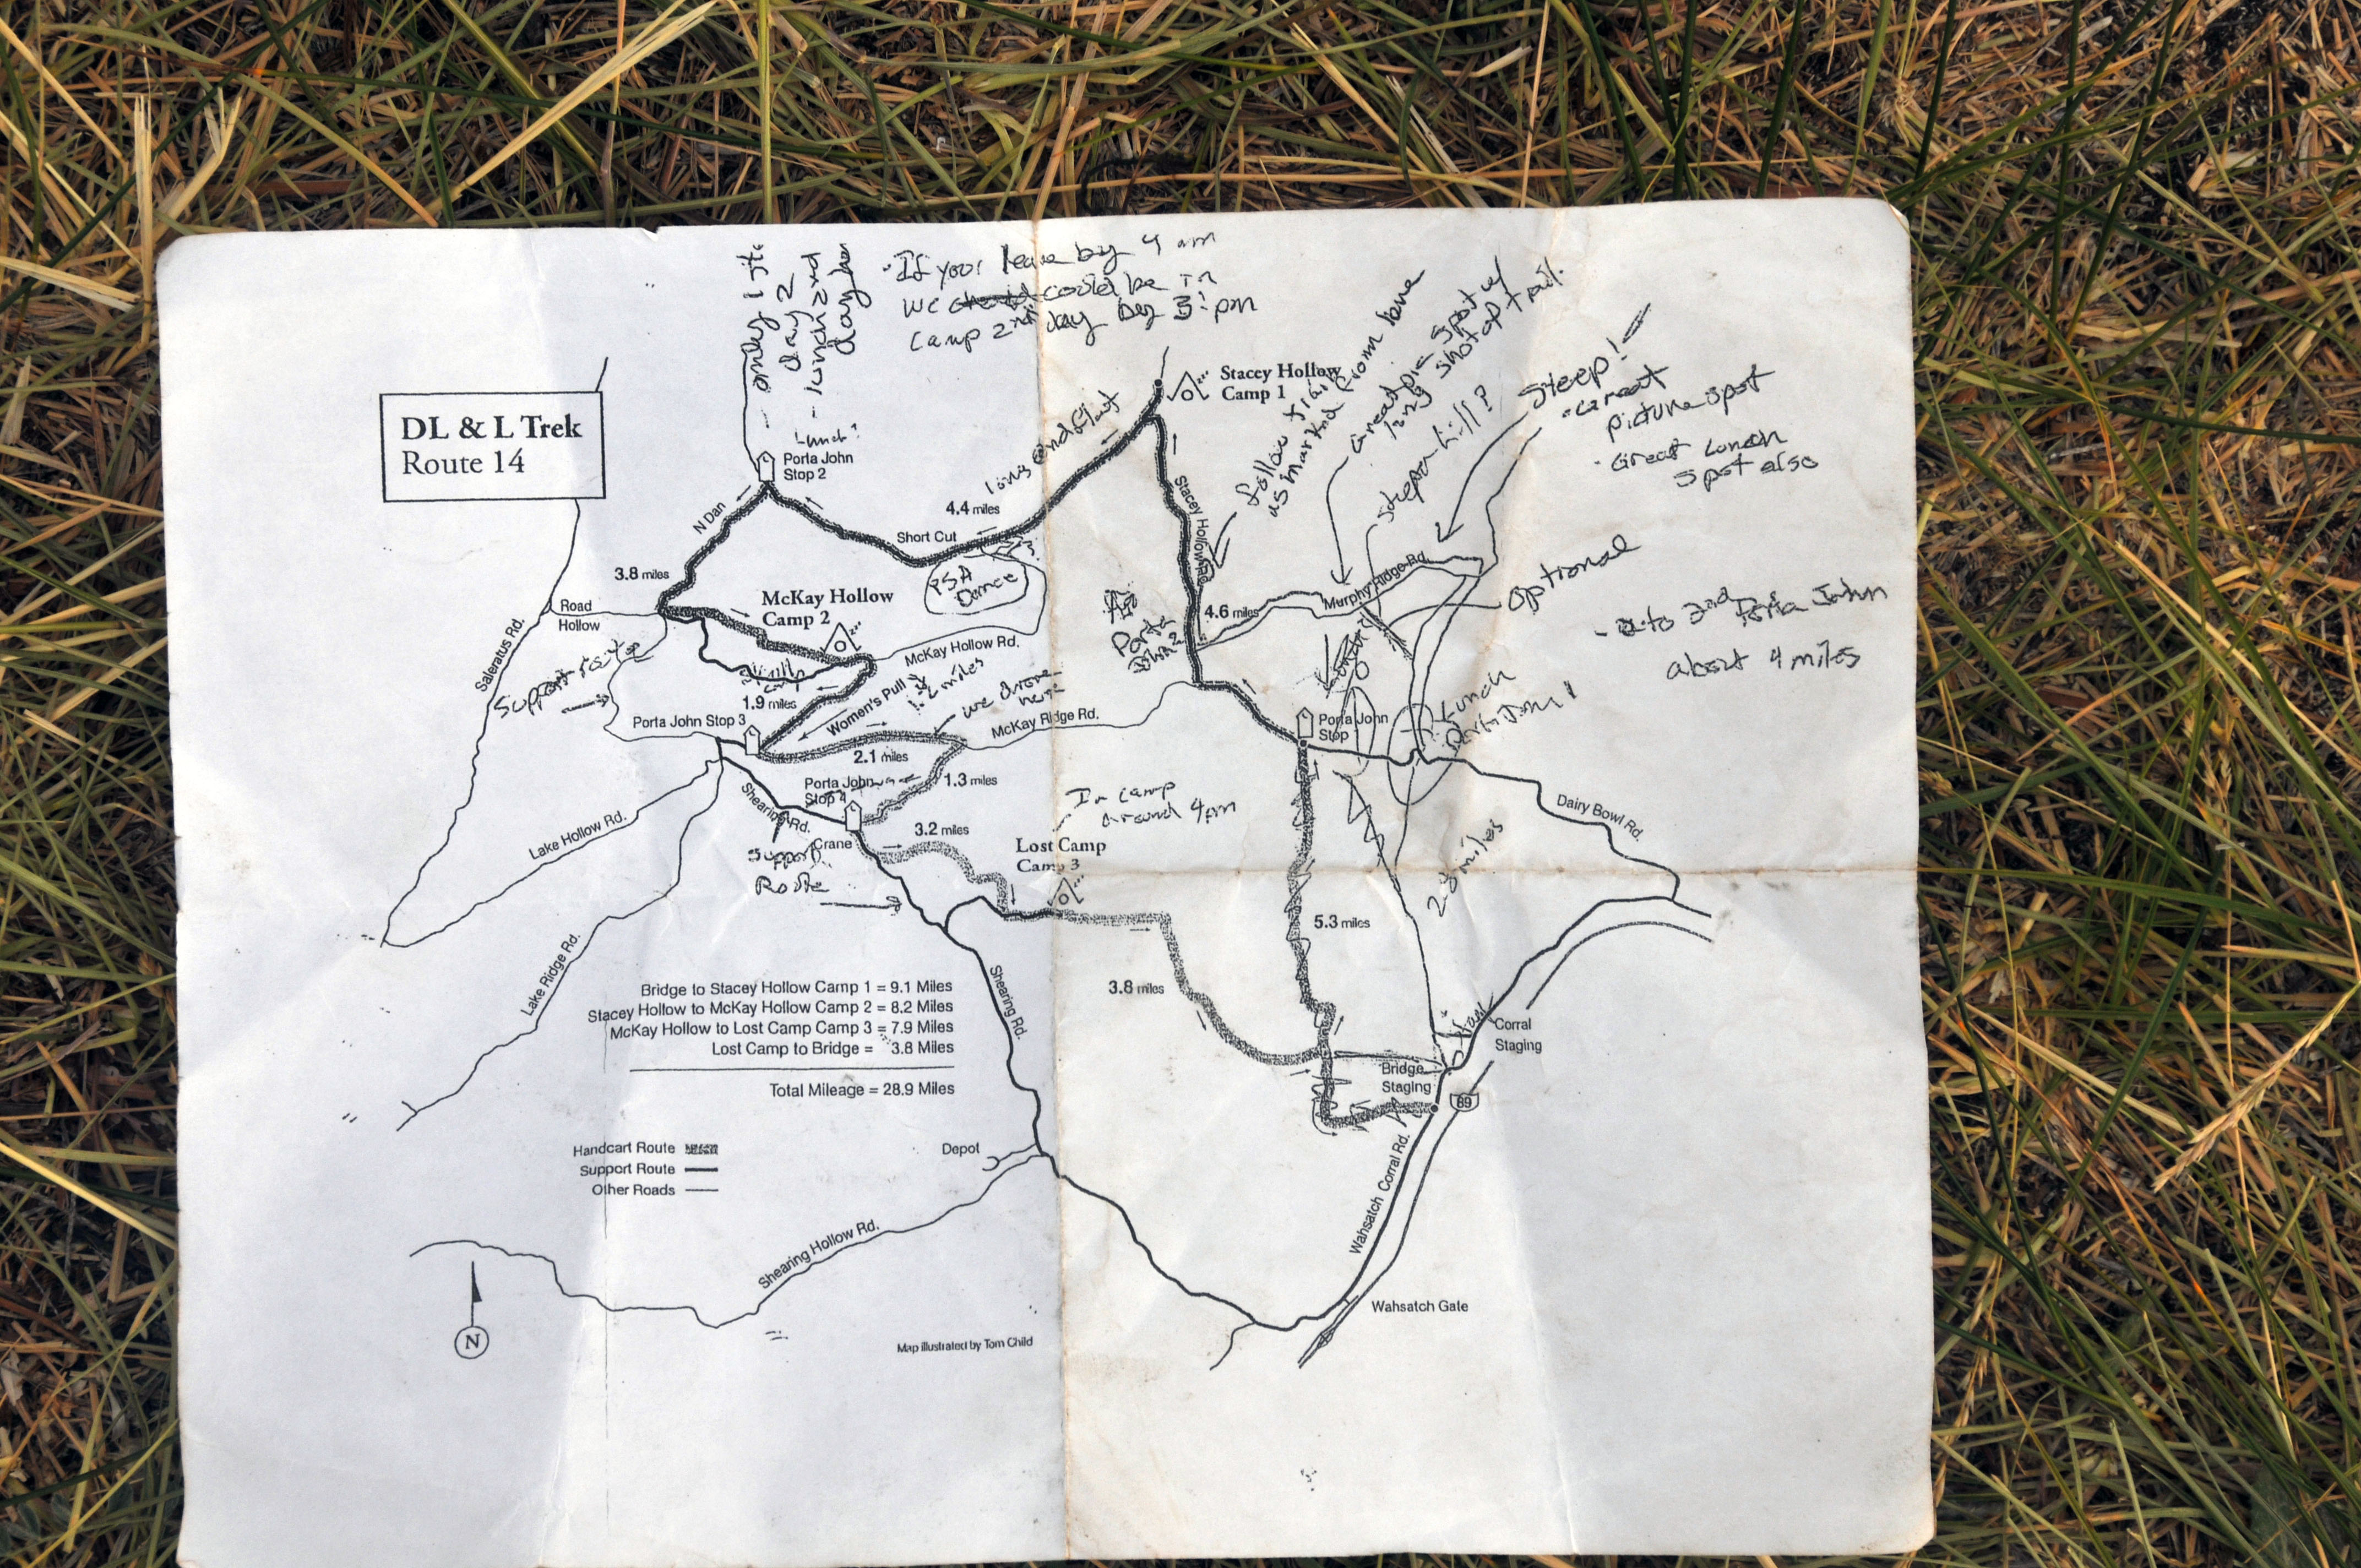 only 1 site
day 2
- lunch 2nd
day here
If your leave by 9 am
we could be in
camp 2nd day by 3: pm
follow trail
as marked from here
Great pic spot w/
long shot of trail.
steeper hill?
Steep!
· Great
picture spot
· Great Lunch
spot also
DL & L Trek
Route 14
Lunch?
Porta John
Stop 2
Stacey Hollow
Camp 1
long and flat
4.4 miles
N Dan
Short Cut
Stacey Hollow Rd.
3.8 miles
PSA
Dance
McKay Hollow
Camp 2
Road
Hollow
Saleratus Rd.
4.6 miles
Murphy Ridge Rd.
optional
- to 2nd Porta John
about 4 miles
Porta
John?
McKay Hollow Rd.
Support route
1.9 miles
Women's Pull
1.2 miles
we drove
here
McKay Ridge Rd.
Porta John Stop 3
2.1 miles
1.3 miles
Porta John
Stop 1
Lunch
Porta John 1
Porta John
Stop 4
Shearing Rd.
Crane
3.2 miles
Support
Route
In camp
around 4pm
Lost Camp
Camp 3
Lake Hollow Rd.
Dairy Bowl Rd.
2.8 miles
5.3 miles
Lake Ridge Rd.
3.8 miles
Shearing Rd.
Bridge to Stacey Hollow Camp 1 = 9.1 Miles
Stacey Hollow to McKay Hollow Camp 2 = 8.2 Miles
McKay Hollow to Lost Camp Camp 3 = 7.9 Miles
Lost Camp to Bridge = 3.8 Miles
Total Mileage = 28.9 Miles
Corral
Staging
Bridge
Staging
89
Handcart Route
Support Route
Other Roads
Depot
Wahsatch Corral Rd.
Shearing Hollow Rd.
Wahsatch Gate
N
Map illustrated by Tom Child